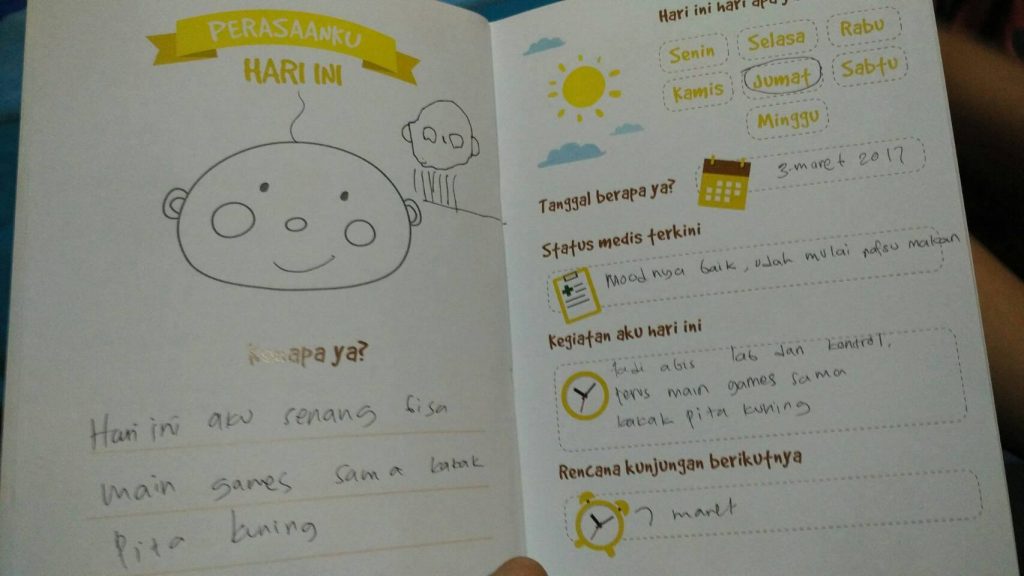 PERASAANKU
HARI INI
Kenapa ya?
Hari ini aku senang bisa
main games sama kakak
Pita kuning
Hari ini hari apa ya
Senin
Selasa
Rabu
Kamis
Jumat
Sabtu
Minggu
Tanggal berapa ya?
3-maret 2017
Status medis terkini
Moodnya baik, udah mulai nafsu makan
Kegiatan aku hari ini
tadi abis lab dan kontrol,
terus main games sama
kakak pita kuning
Rencana kunjungan berikutnya
7 maret